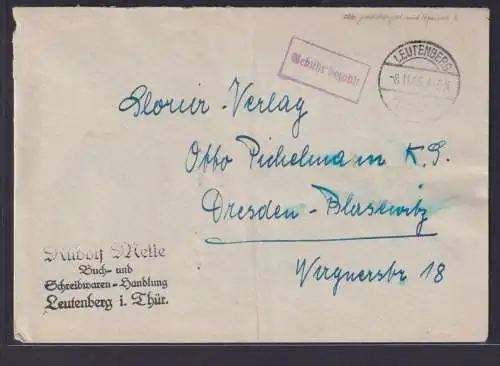 Gebühr bezahlt
LEUTENBERG
Florier-Verlag
Otto Pichelmann K.G.
Dresden-Blasewitz
Wagnerstr 18
Rudolf Melle
Buch- und
Schreibwaren-Handlung
Leutenberg i. Thür.